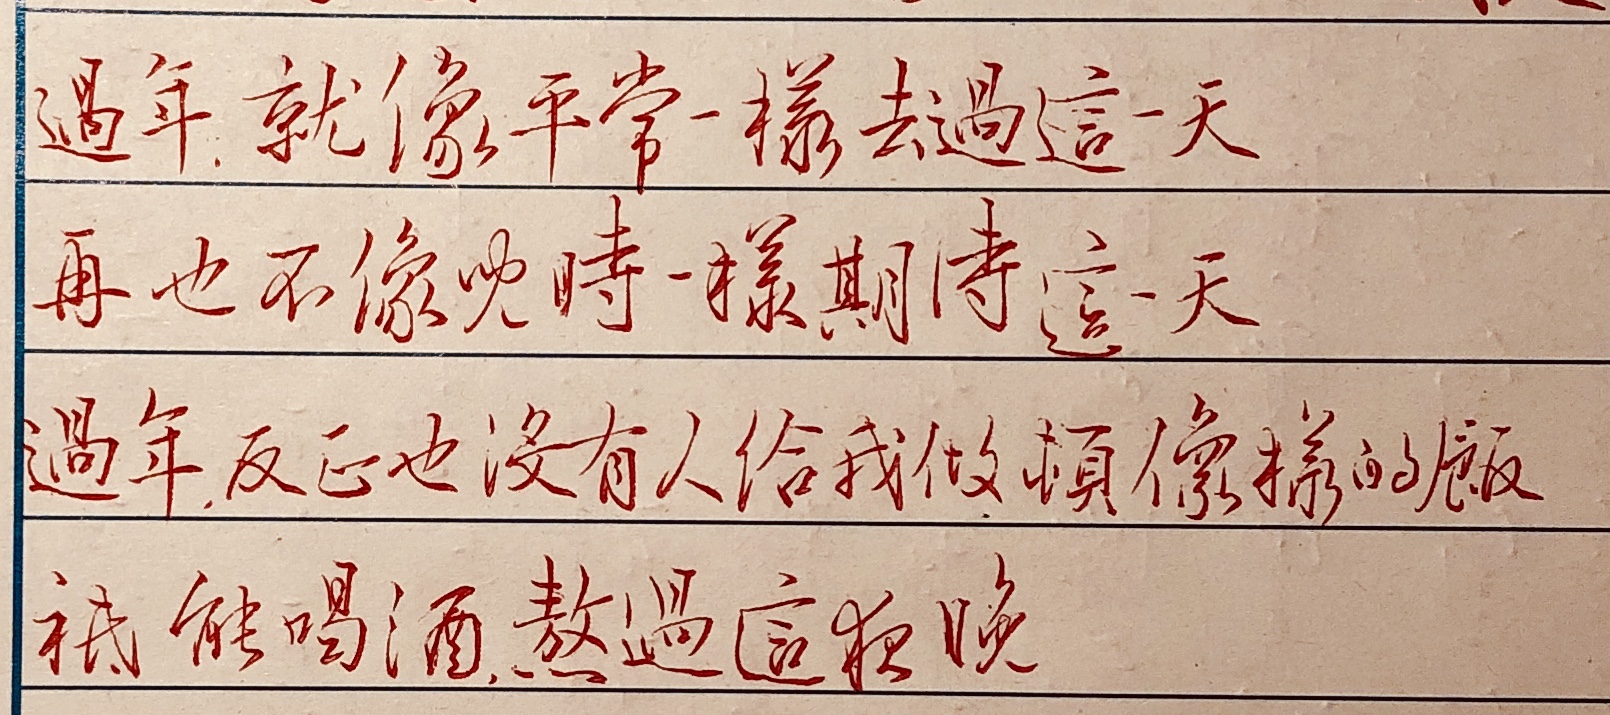 過年.就像平常一樣去過這一天
再也不像兒時一樣期待這一天
過年.反正也沒有人給我做頓像樣的飯
祇能喝酒.熬過這夜晚